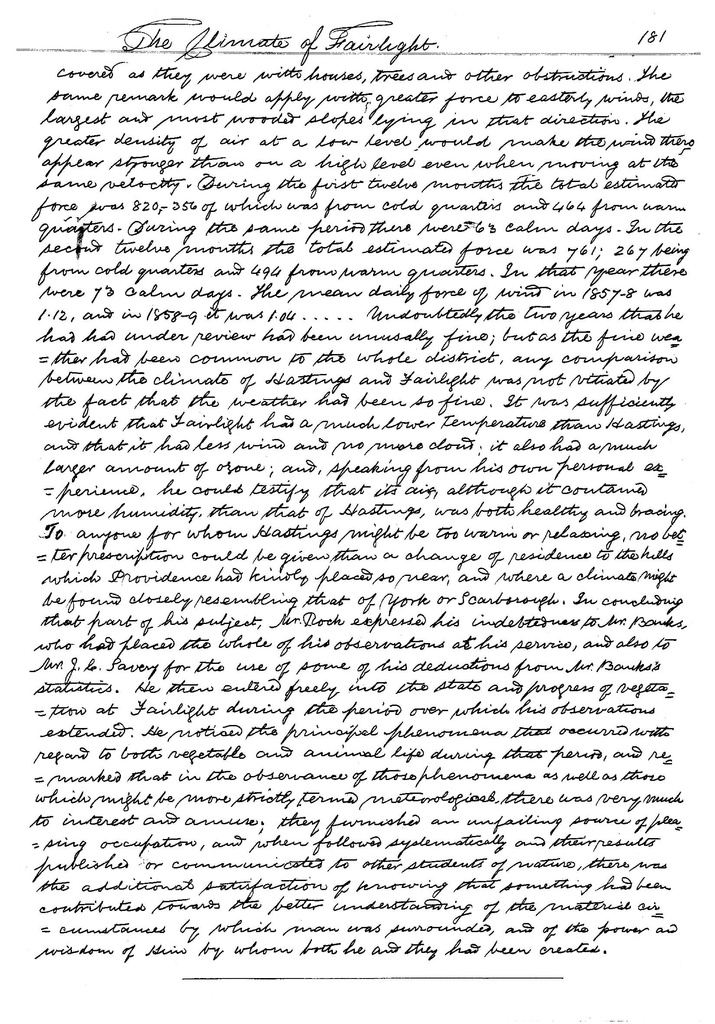 The Climate of Fairlight. 181
covered as they were with houses, trees and other obstructions. The
same remark would apply with greater force to easterly winds, the
largest and most wooded slopes lying in that direction. The
greater density of air at a low level would make the wind there
appear stronger than on a high level even when moving at the
same velocity. During the first twelve months the total estimated
force was 820,- 356 of which was from cold quarters and 464 from warm
quarters. During the same period there were 63 calm days. In the
second twelve months the total estimated force was 761; 267 being
from cold quarters and 494 from warm quarters. In that year there
were 73 calm days. The mean daily force of wind in 1857-8 was
1.12, and in 1858-9 it was 1.04 ..... Undoubtedly the two years that he
had had under review had been unusally fine; but as the fine wea-
=ther had been common to the whole district, any comparison
between the climate of Hastings and Fairlight was not vitiated by
the fact that the weather had been so fine. It was sufficiently
evident that Fairlight had a much lower Temperature than Hastings,
and that it had less wind and no more cloud; it also had a much
larger amount of ozone; and, speaking from his own personal ex=
=perience, he could testify that its air, although it contained
more humidity, than that of Hastings, was both healthy and bracing.
To anyone for whom Hastings might be too warm or relaxing, no bet=
=ter prescription could be given than a change of residence to the hills
which Providence had kindly placed so near, and where a climate might
be found closely resembling that of York or Scarborough. In concluding
that part of his subject, Mr. Rock expressed his indebtedness to Mr. Banks,
who had placed the whole of his observations at his service, and also to
Mr. J. C. Savery for the use of some of his deductions from Mr. Banks's
statistics. He then entered freely into the state and progress of vegeta=
=tion at Fairlight during the period over which his observations
extended. He noticed the principal phenomena that occurred with
regard to both vegetable and animal life during that period, and re=
=marked that in the observance of those phenomena as well as those
which might be more strictly termed meteorological, there was very much
to interest and amuse; they furnished an unfailing source of plea=
=sing occupation, and when followed systematically and their results
published or communicated to other students of nature, there was
the additional satisfaction of knowing that something had been
contributed towards the better understanding of the material cir=
=cumstances by which man was surrounded, and of the power and
wisdom of Him by whom both he and they had been created.